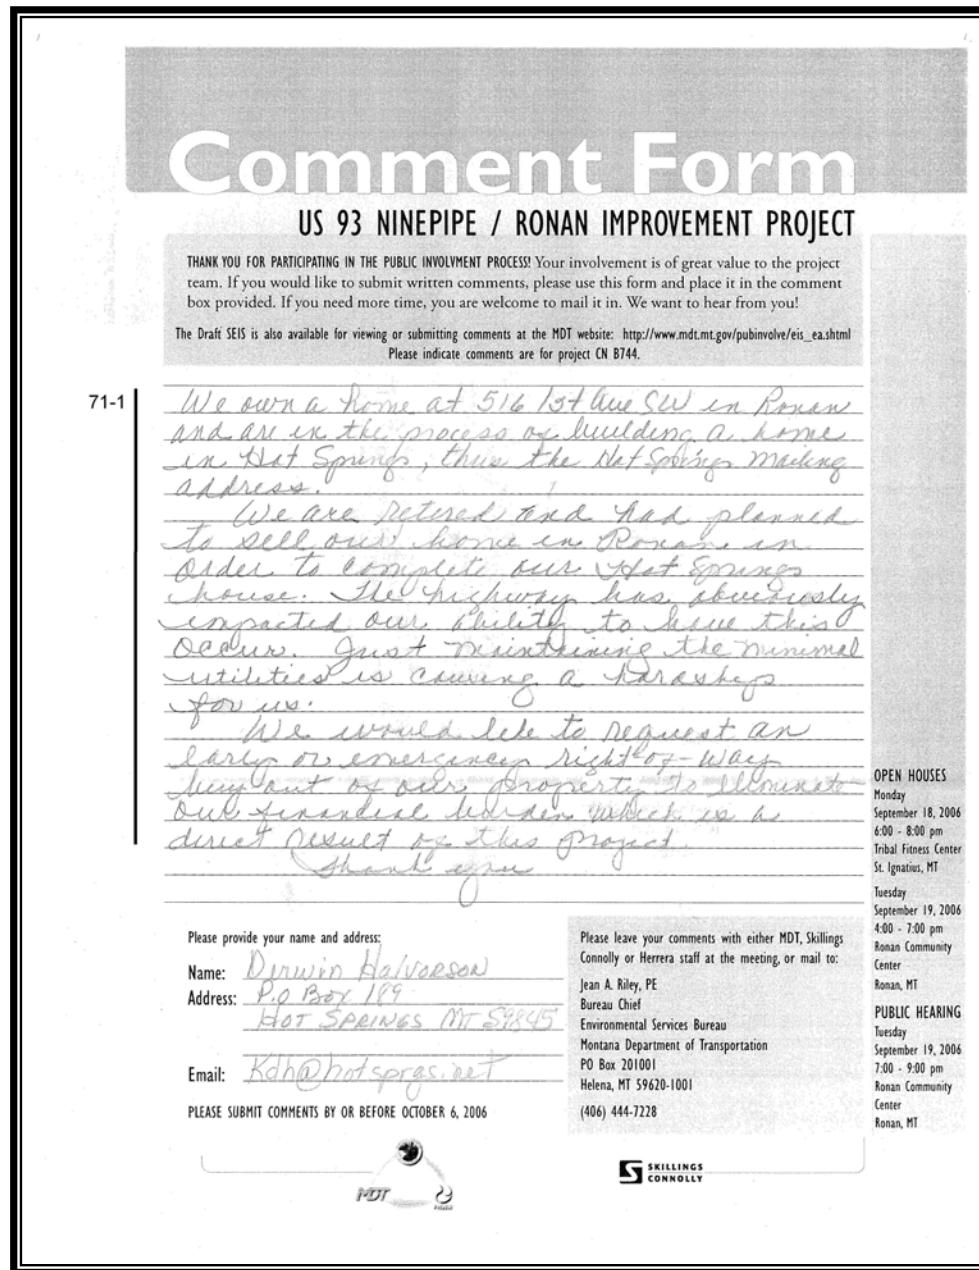 Comment Form
US 93 NINEPIPE / RONAN IMPROVEMENT PROJECT
THANK YOU FOR PARTICIPATING IN THE PUBLIC INVOLVMENT PROCESS! Your involvement is of great value to the project
team. If you would like to submit written comments, please use this form and place it in the comment
box provided. If you need more time, you are welcome to mail it in. We want to hear from you!
The Draft SEIS is also available for viewing or submitting comments at the MDT website: http://www.mdt.mt.gov/pubinvolve/eis_ea.shtml
Please indicate comments are for project CN B744.
71-1
We own a home at 516 1st Ave SW in Ronan
and are in the process of building a home
in Hot Springs, thus the Hot Springs mailing
address.
We are retired and had planned
to sell our home in Ronan in
order to complete our Hot Springs
house. The highway has obviously
impacted our ability to have this
occur. Just maintaining the minimal
utilities is causing a hardship
for us.
We would like to request an
early or emergency right-of-way
buy out of our property to eliminate
our financial burden which is a
direct result of this project.
Thank you
Please provide your name and address:
Name: Derwin Halvorson
Address: P.O Box 189
HOT SPRINGS MT 59845
Email: Kdh@hotsprgs.net
PLEASE SUBMIT COMMENTS BY OR BEFORE OCTOBER 6, 2006
Please leave your comments with either MDT, Skillings
Connolly or Herrera staff at the meeting, or mail to:
Jean A. Riley, PE
Bureau Chief
Environmental Services Bureau
Montana Department of Transportation
PO Box 201001
Helena, MT 59620-1001
(406) 444-7228
OPEN HOUSES
Monday
September 18, 2006
6:00 - 8:00 pm
Tribal Fitness Center
St. Ignatius, MT
Tuesday
September 19, 2006
4:00 - 7:00 pm
Ronan Community
Center
Ronan, MT
PUBLIC HEARING
Tuesday
September 19, 2006
7:00 - 9:00 pm
Ronan Community
Center
Ronan, MT
MDT
SKILLINGS
CONNOLLY